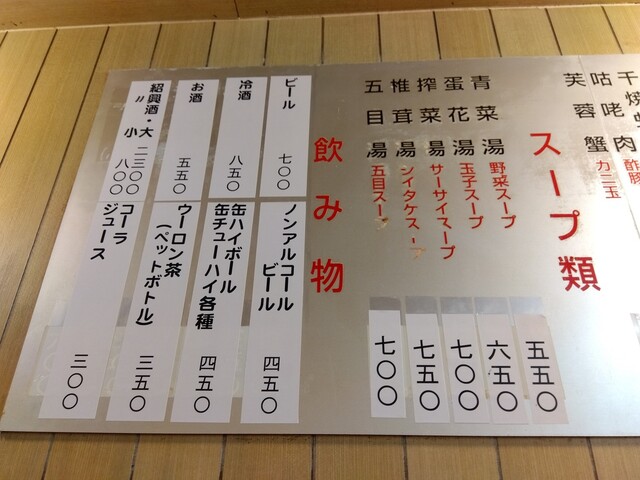 干焼
咕咾肉 酢豚
芙蓉蟹 カニ玉
スープ類
青菜湯 野菜スープ 五五〇
蛋花湯 玉子スープ 六五〇
搾菜湯 サーサイスープ 七〇〇
椎茸湯 シイタケスープ 七五〇
五目湯 五目スープ 七〇〇
飲み物
ビール 七〇〇
冷酒 八五〇
お酒 五五〇
紹興酒・大 二三〇〇
〃 小 八〇〇
ノンアルコール
ビール 四五〇
缶ハイボール
缶チューハイ各種 四五〇
ウーロン茶
(ペットボトル) 三五〇
コーラ
ジュース 三〇〇